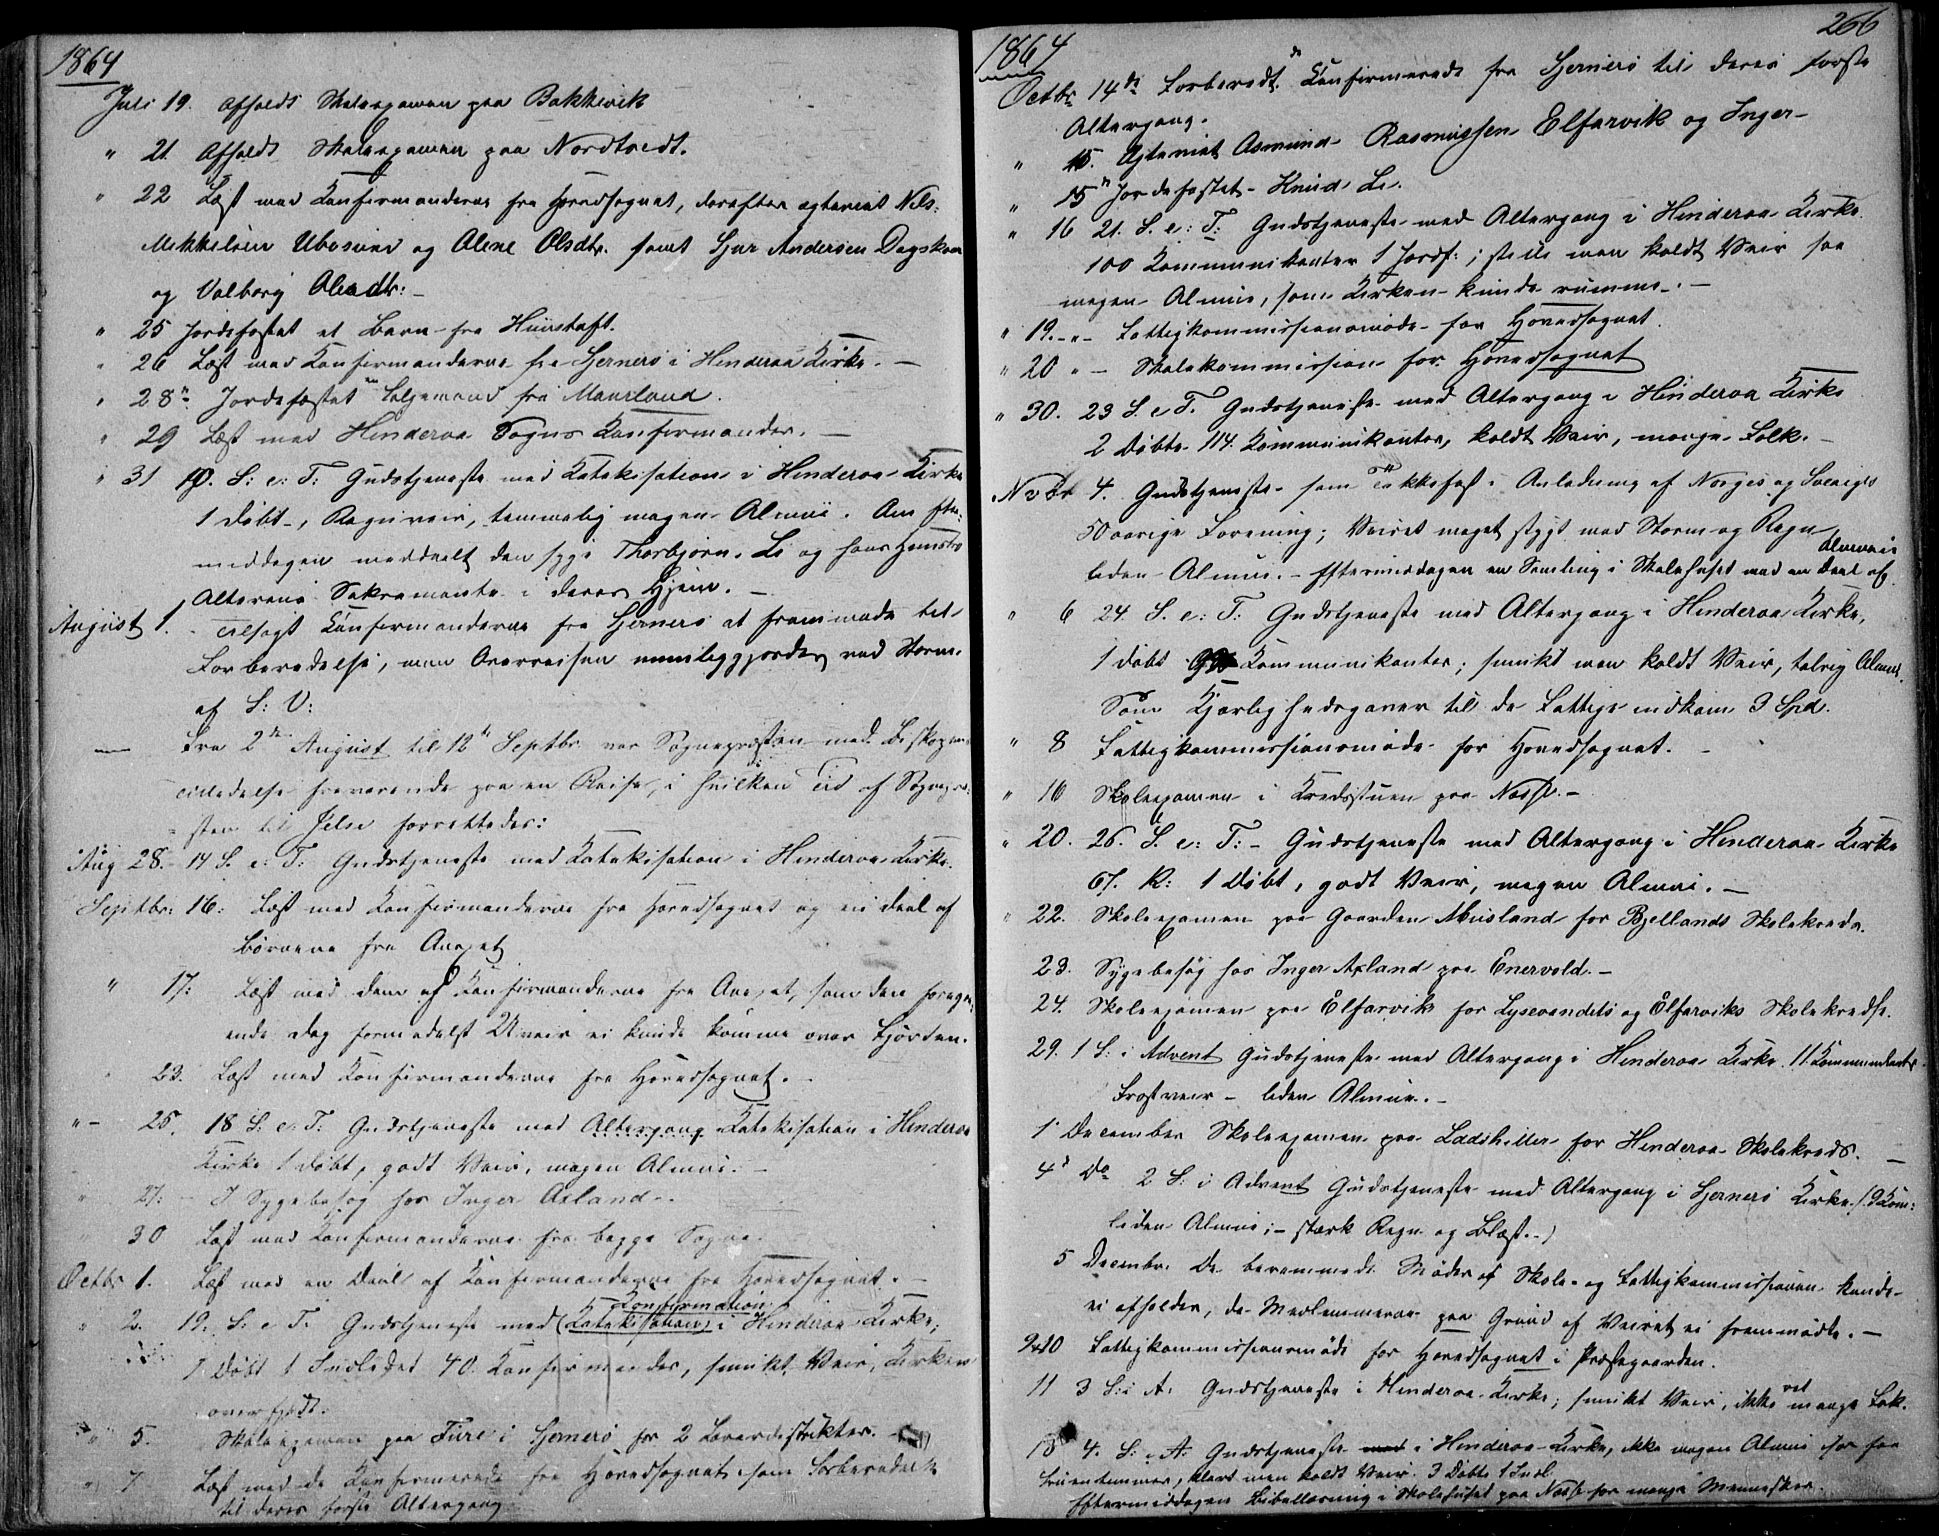 1864
Juli 19. Afholdt Skoleexamen paa Bakkevik
" 21. Afholdt Skoleexamen paa Nordtvedt.
" 22 Læst med Konfirmanderne fra Hovedsognet, derefter ægteviet Nils
Mikkelsen og Alene Olsdtr. samt Sjur Andersen
og Valborg Olsdtr: –
" 25 Jordfæstet et Barn fra
" 26 Læst med Konfirmanderne fra Sjernerö i Hinderaa Kirke. –
" 28 Jordfæstet fra Mauerland.
" 29 Læst med Hinderaa Sogns Konfirmander. –
" 31 10. S: e: T: Gudstjeneste med Katekisation i Hinderaa Kirke
1 döbt, Regnveir, temmelig megen Almue. Om Efter-
middagen meddelt den syge Thorbjörn Li og hans Hustro
Alterens Sakramente i deres Hjem. –
August 1. Tilsagt Konfirmanderne fra Sjernerö at fremmöde til
Forberedelse, men Overreisen umuliggjordes ved Storm
af S: V:
– Fra 2den August til 12te Septbr var Sognepræsten med Biskopens
Tilladelse fraværende paa en Reise, i hvilken Tid af Sognepræ-
sten til Jelse forrettedes:
Aug 28. 14 S. e: T: Gudstjeneste med Katekisation i Hinderaa Kirke.
Septbr: 16: Læst med Konfirmanderne fra Hovedsognet og en Deel af
Börnene fra Anexet
" 17: Læst med dem af Konfirmanderne fra Anexet, som den foregaa-
ende Dag formedelst Uveir ei kunde komme over Fjorden.
" 23. Læst med Konfirmanderne fra Hovedsognet. –
" – 25. 18 S: e: T: Gudstjeneste med Altergang Katekisation i Hinderaa
Kirke 1 Döbt, godt Veir, megen Almue. –
" 27: – I Sygebesög hos Inger Axland.
" 30 Læst med Konfirmanderne fra begge Sogne.
Octbr 1. Læst med en Deel af Konfirmanderne fra Hovedsognet. –
Konfirmation
" 2. 19. S: e T: Gudstjeneste med (Katekisation) i Hinderaa Kirke,
1 Döbt 1 Indledet 40 Konfirmander, smukt Veir, Kirken
overfyldt.
" 5. Skoleexamen paa Fure i Sjernerö for 2 –
" 7 Læst med de Konfirmerede fra Hovedsognet som Forberedelse
til deres förste Altergang
266
1864
Octbr 14de Forberedt de Konfirmerede fra Sjernerö til deres förste
Altergang.
" 15. Ægteviet Asmund Rasmussen Elfarvik og Inger
" 15 Jordfæstet Knud Li.
" 16 21. S. e: T: Gudstjeneste med Altergang i Hinderaa Kirke
100 Kommunikanter 1 Jordf: ; stille men koldt Veir saa
megen Almue, som Kirken kunde rumme. –
" 19. – " – Fattigkommissionsmöde for Hovedsognet.
" 20 " – Skolekommission for Hovedsognet
" 30. 23 S. e T. Gudstjeneste med Altergang i Hinderaa Kirke
2 Döbte 114 Kommunikanter, koldt Veir, mange Folk. –
Nvbr 4. Gudstjeneste som Takkefest i Anledning af Norges og Sveriges
50aarige Forening; Veiret meget stygt med Storm og Regn
liden Almue. – Eftermiddagen en Samling i Skolehuset med en Deel af Almuen
" 6 24 S. e: T: Gudstjeneste med Altergang i Hinderaa Kirke,
1 döbt Kommunikanter; smukt men koldt Veir, talrig Almue.
Som Kjærlighedsgaver til de Fattige indkom 3 Spd.
" 8 Fattigkommissionsmöde for Hovedsognet. –
" 16 Skoleexamen i Kredsstuen paa –
" 20. 26. S. e: T: – Gudstjeneste med Altergang i Hinderaa Kirke
67. K: 1 Döbt, godt Veir, megen Almue. –
" 22. Skoleexamen paa Gaarden Musland for Bjellands Skolekreds.
23. Sygebesög hos Inger Axland paa Enervold. –
24. Skoleexamen paa Elfarvik for Lysevandets og Elfarviks Skolekredse.
29. 1 S: i Advent Gudstjeneste med Altergang i Hinderaa Kirke. 11 Kommunikanter
Frostveir – liden Almue. –
1 December Skoleexamen paa Ladehillen for Hinderaa Skolekreds. –
4de Do 2 S: i Advent Gudstjeneste med Altergang i Sjernerö Kirke. (9 Kom:
liden Almue; – stærk Regn og Blæst. –)
5 Decembr. De berammede Möder af Skole- og Fattigkommissionen kunde
ei afholdes, da Medlemmerne paa Grund af Veiret ei fremmödte. –
Fattigkommissionsmöde for Hovedsognet i Præstegaarden.
11 3 S: i A. Gudstjeneste i Hinderaa Kirke; smukt Veir, ikke ret mange Folk.
18 4. S: i A. Gudstjeneste med i Hinderaa Kirke, ikke megen Almue
klart men koldt Veir. 3 Döbte 1 Indl.
Eftermiddagen Bibellæsning i Skolehuset paa for mange Mennesker.